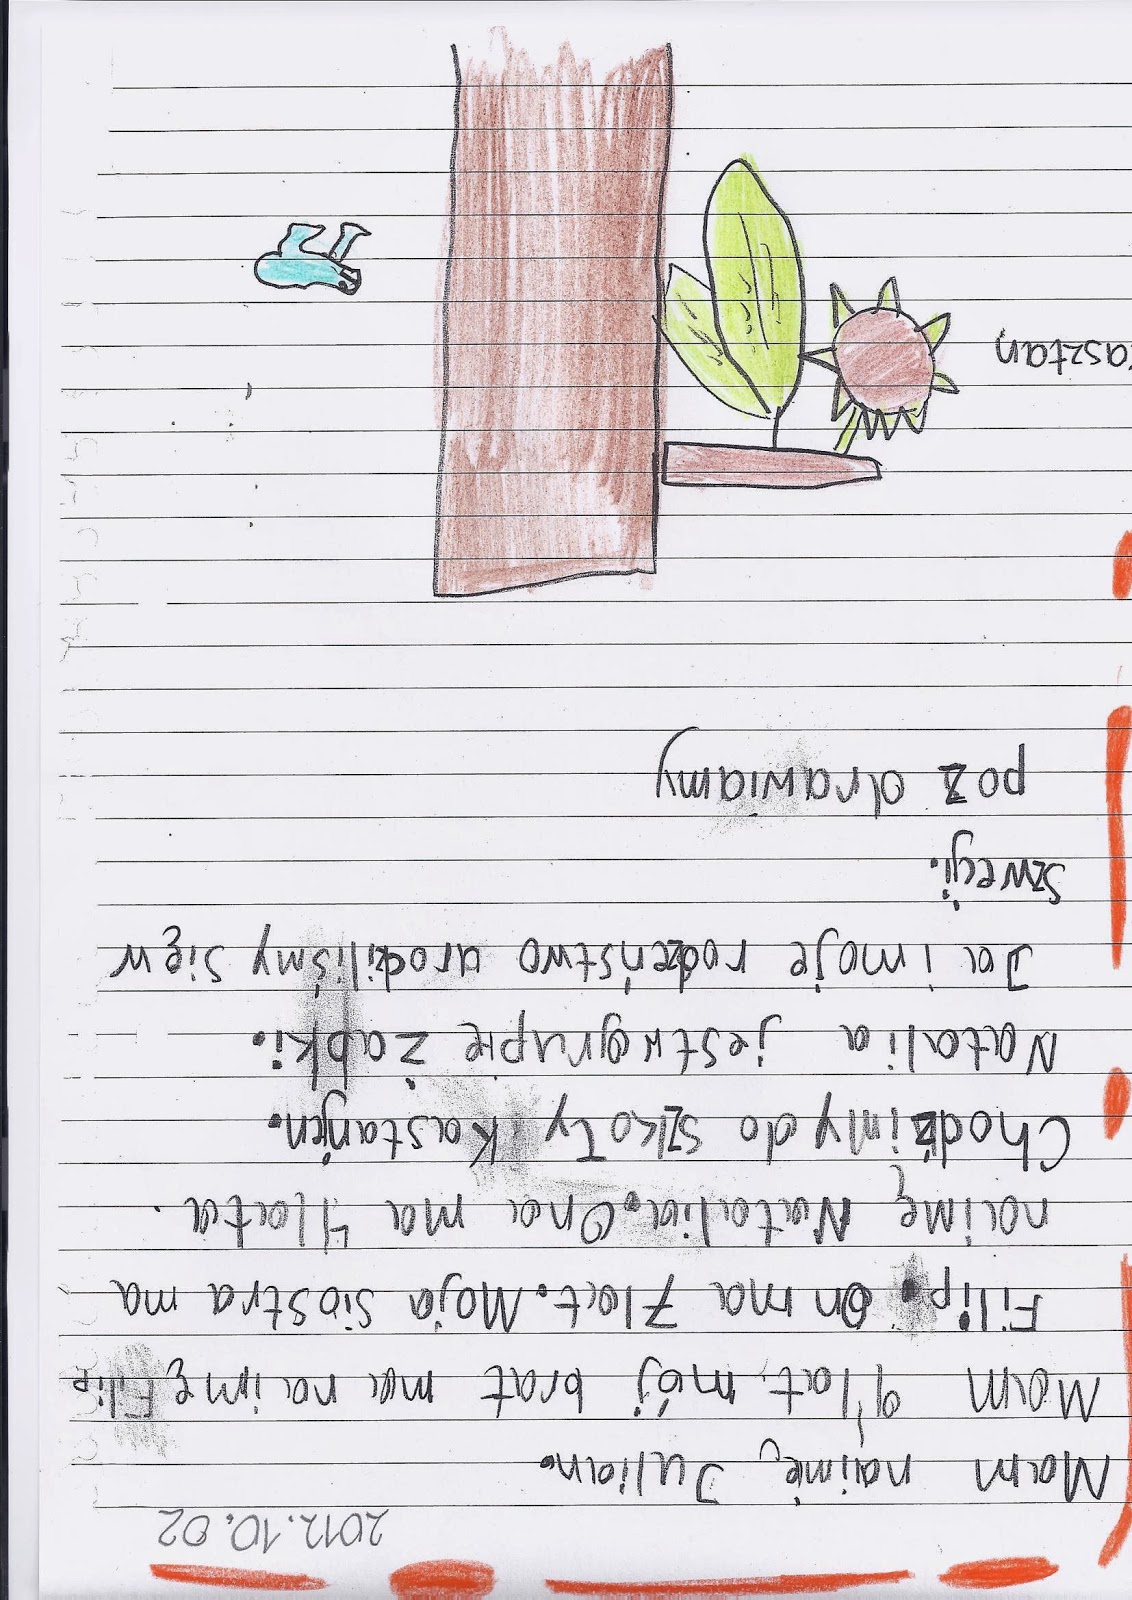 2012.10.02
Mam naimię Julian.
Mam 9 lat, mój brat ma naimię Filip
Filip. On ma 7 lat. Moja siostra ma
naimię Natalia. Ona ma 4 lata.
Chodzimy do szkoły Kastanjen.
Natalia jest w grupie żapki.
Ja i moje rodzeństwo urodziliśmy się w
szwecji.
poz drawiamy
kasztan